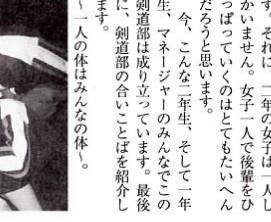 す。それに、二年の女子は一人し
かいません。女子一人で後輩をひ
っぱっていくのはとてもたいへん
だろうと思います。
今、こんな二年生、そして一年
生、マネージャーのみんなでこの
剣道部は成り立っています。最後
に、剣道部の合いことばを紹介し
ます。
〜一人の体はみんなの体〜。